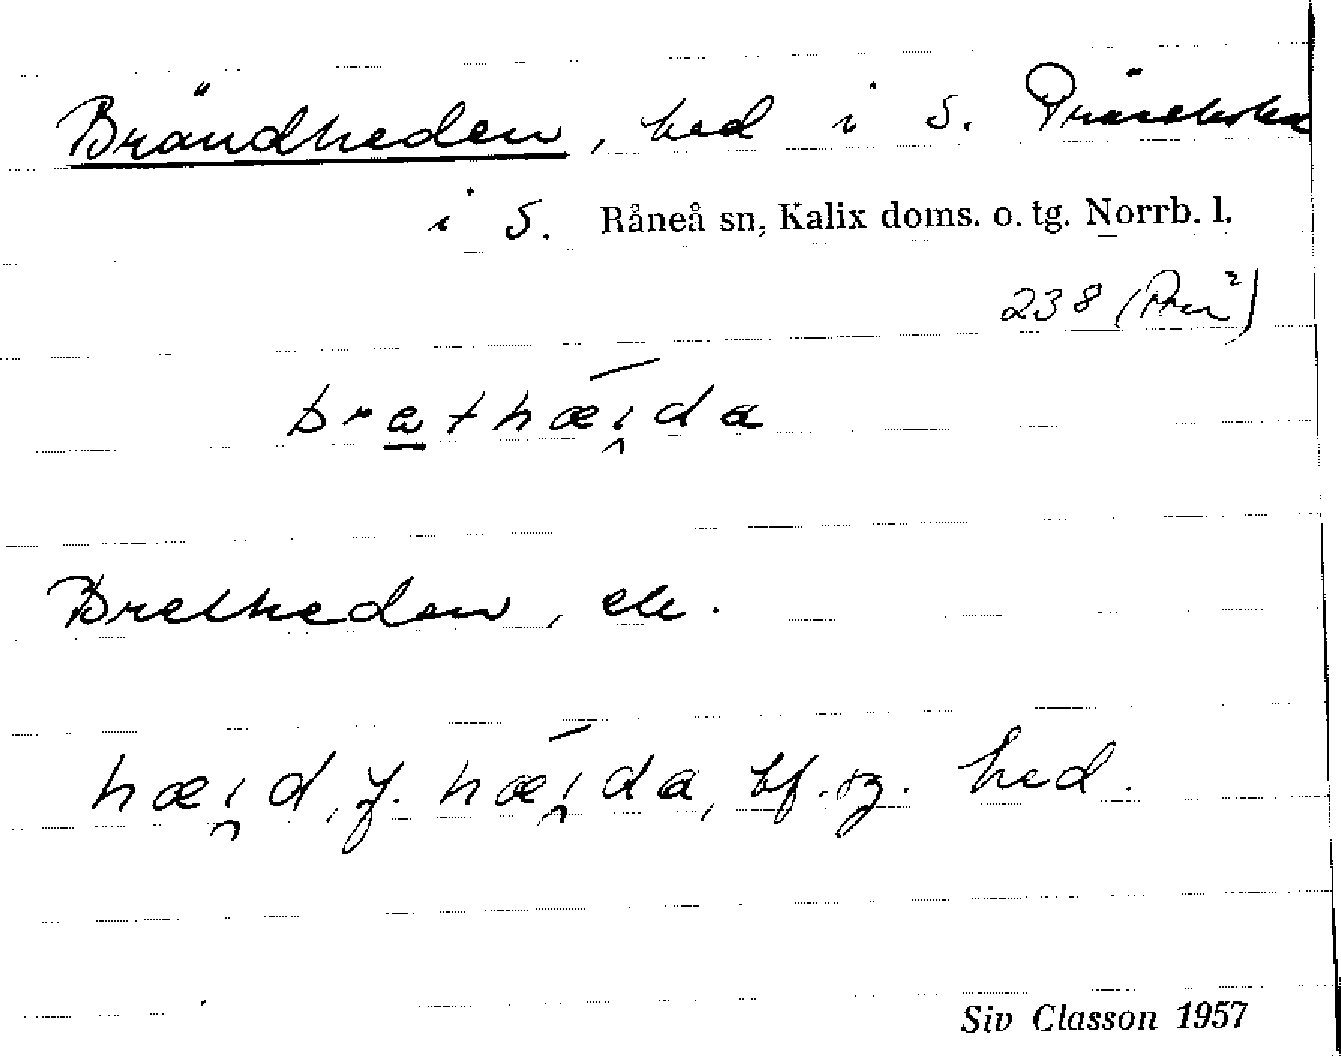 Brändheden, hed i S. Prästholm
i S. Råneå sn, Kalix doms. o. tg. Norrb. l.
238 (Prm²)
brathæi̯da
Bretheden, ek.
hæi̯d, f. hæi̯da, bf. sg. hed.
Siv Classon 1957